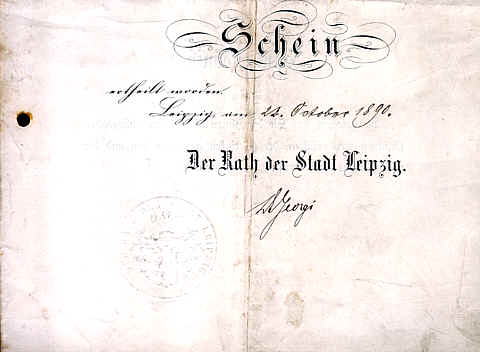 Schein
ertheilt worden.
Leipzig, am 22. October 1890.
Der Rath der Stadt Leipzig.
Dr Georgi